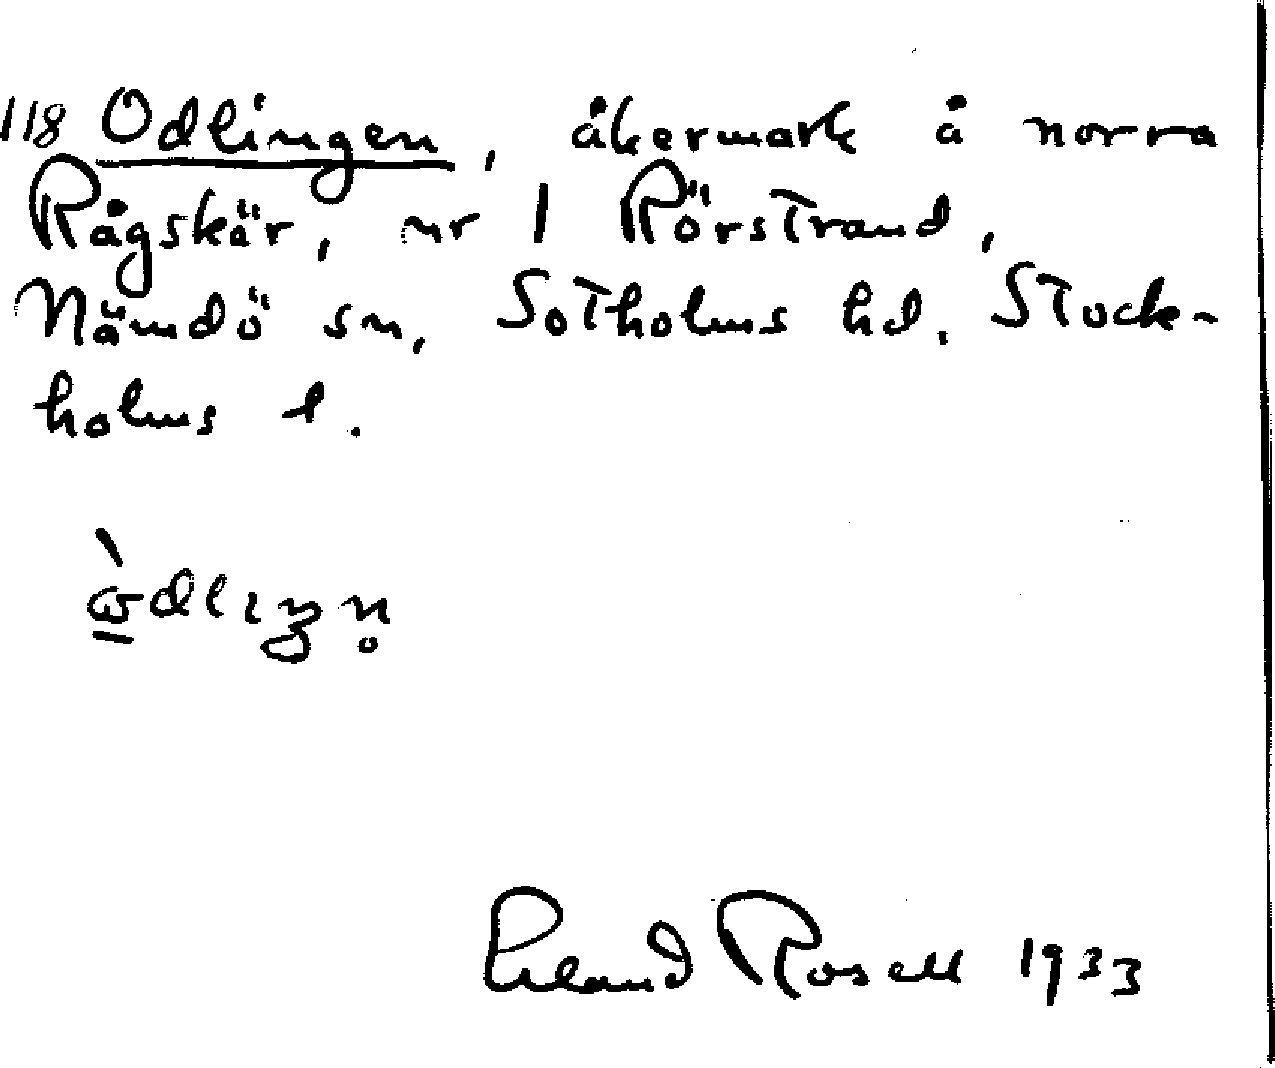 118 Odlingen, åkermark å norra
Rågskär, nr 1 Rörstrand,
Nämdö sn, Sotholms hd. Stock-
holms l.
Erland Rosell 1933